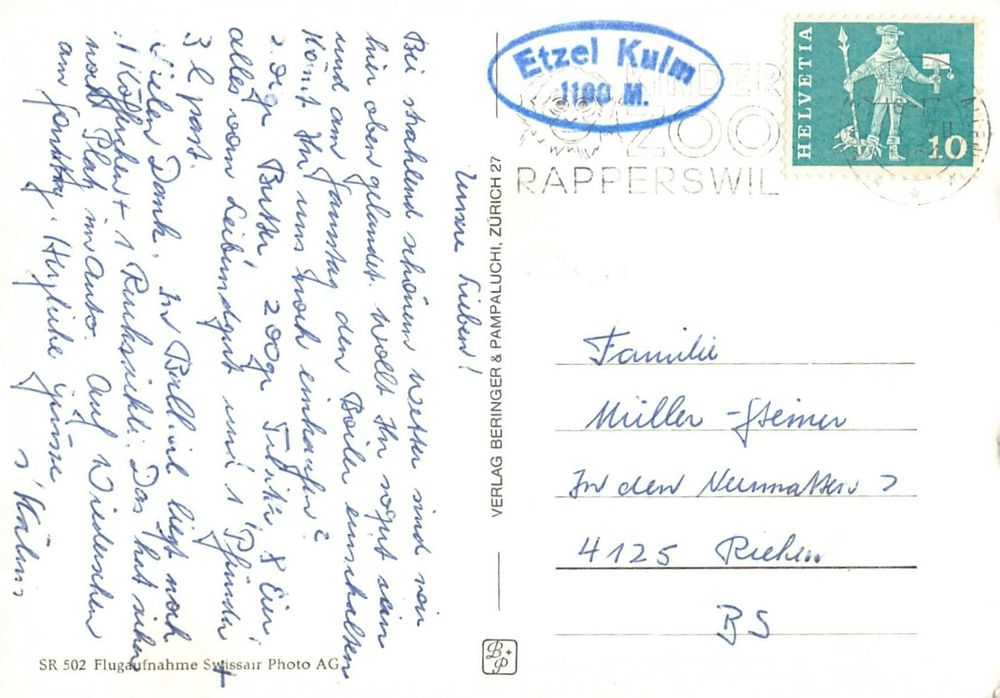 Unsere Lieben!
Bei strahlend schönem Wetter sind wir
hier oben gelandet. Wollt Ihr so gut sein
und am Samstag den Boiler einschalten
Könnt Ihr uns noch einkaufen?
2 Butter 200gr 8 Eier
alles vom und 1 Pfünder +
3 l past.
Vielen Dank. In liegt noch
1 Köfferchen + 1 Rucksäckli. Das hat sicher
noch Platz im Auto. Auf Wiedersehen
am Sonntag. Herzliche Grüsse
Etzel Kulm
1100 M.
KINDER
ZOO
RAPPERSWIL
HELVETIA
10
VERLAG BERINGER & PAMPALUCHI, ZÜRICH 27
Familie
Müller-Steiner
In den Neumatten
4125 Riehen
BS
SR 502 Flugaufnahme Swissair Photo AG
B+P